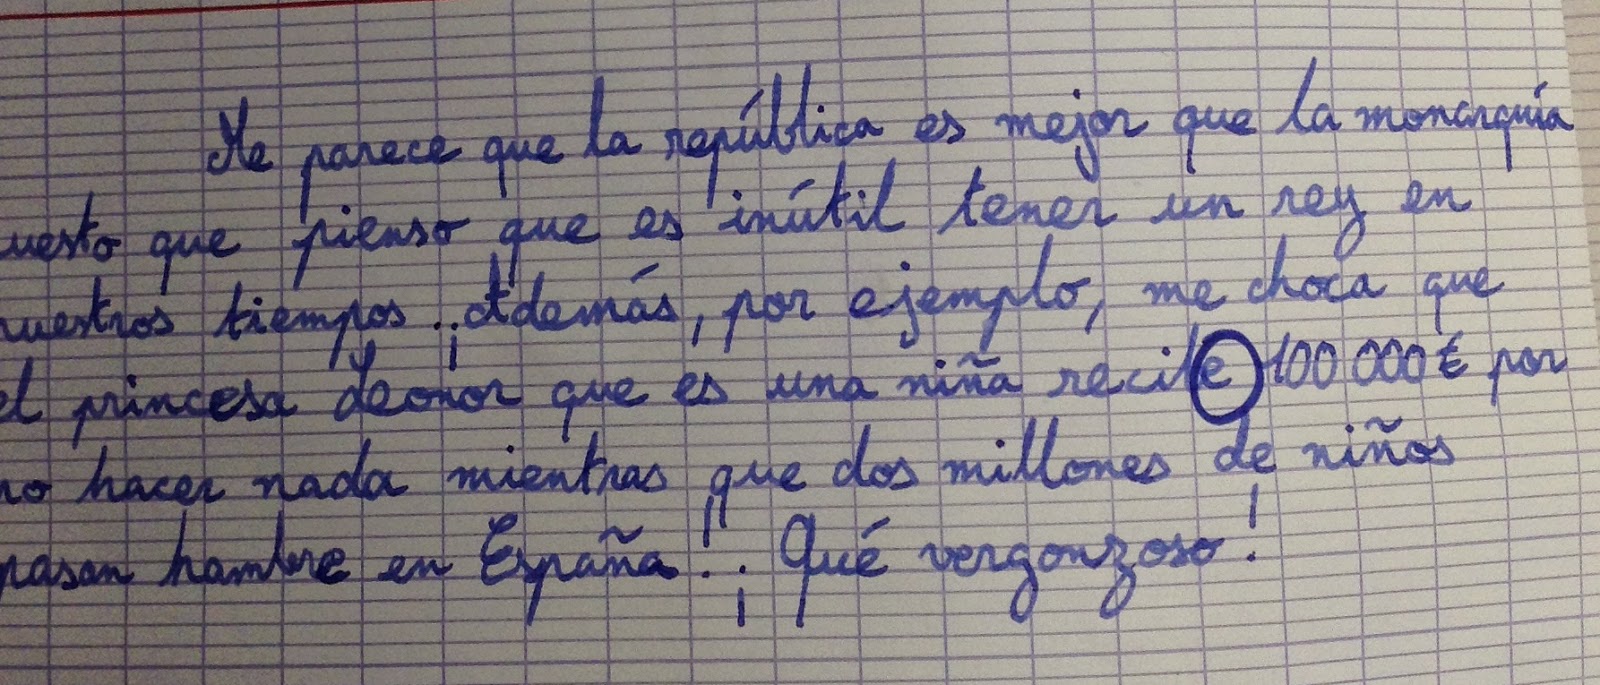 Me parece que la república es mejor que la monarquía
uesto que pienso que es inútil tener un rey en
uestros tiempos. ¡Además, por ejemplo, me choca que
el princesa Leonor que es una niña recibe 100 000 € por
no hacer nada mientras que dos millones de niños
pasan hambre en España! ¡Qué vergonzoso!